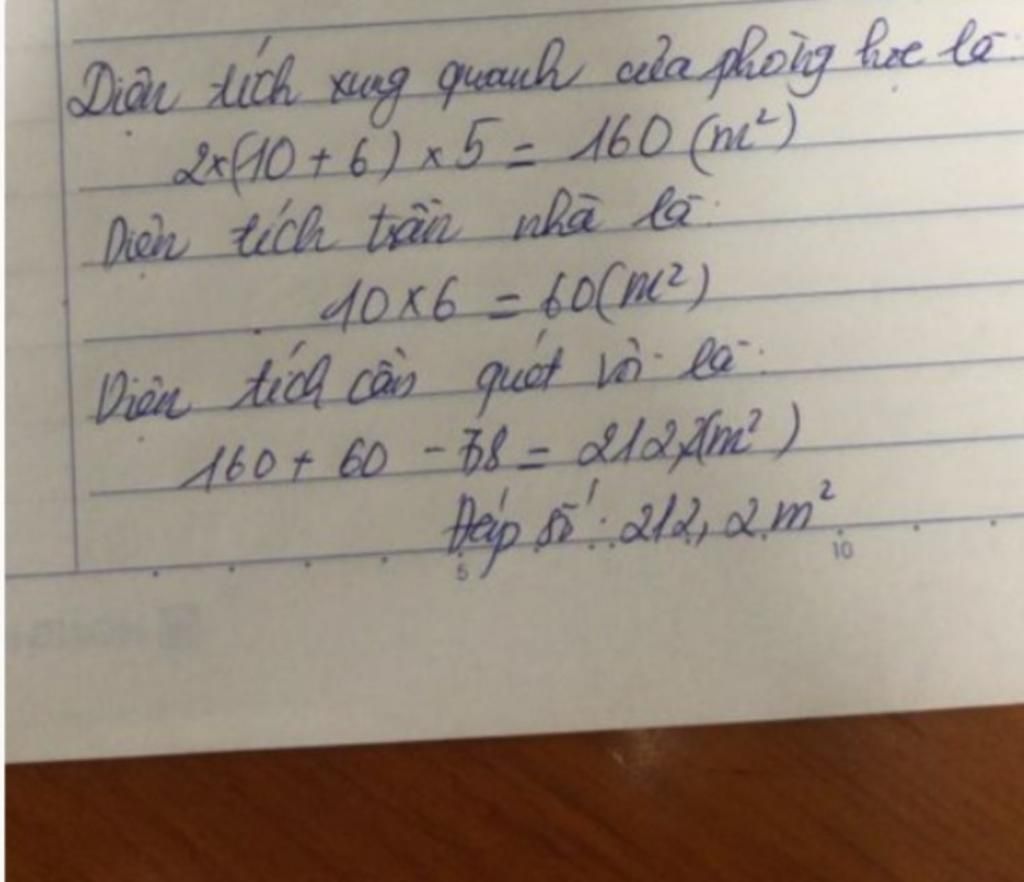 Diện tích xung quanh của phòng học là:
2×(10 + 6) × 5 = 160 (m²)
Diện tích trần nhà là:
10 × 6 = 60 (m²)
Diện tích cần quét vôi là:
160 + 60 - 7,8 = 212,2 (m²)
Đáp số: 212,2 m²
5 10